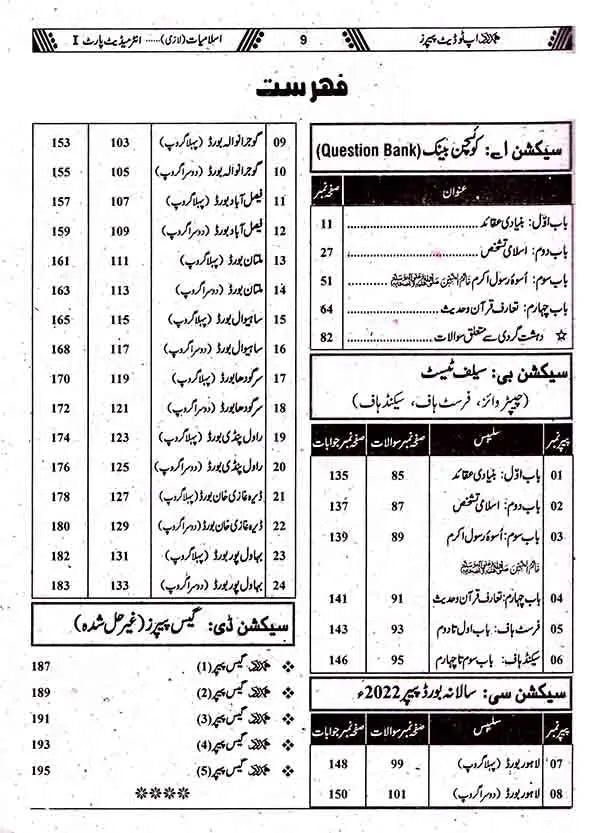 اپ ٹو ڈیٹ پیپرز
9
اسلامیات (لازمی)..... انٹرمیڈیٹ پارٹ I
فہرست
سیکشن اے: کوئسچن بینک (Question Bank)
عنوان صفحہ نمبر
باب اوّل: بنیادی عقائد 11
باب دوم: اسلامی تشخص 27
باب سوم: اُسوۂ رسول اکرم خاتم النبیین صلی اللہ علیہ وسلم 51
باب چہارم: تعارف قرآن وحدیث 64
☆ دہشت گردی سے متعلق سوالات 82
سیکشن بی: سیلف ٹیسٹ
(چیپٹر وائز، فرسٹ ہاف، سیکنڈ ہاف)
پیپر نمبر سلیبس صفحہ نمبر سوالات صفحہ نمبر جوابات
01 باب اوّل: بنیادی عقائد 85 135
02 باب دوم: اسلامی تشخص 87 137
03 باب سوم: اُسوۂ رسول اکرم 89 139
خاتم النبیین صلی اللہ علیہ وسلم
04 باب چہارم: تعارف قرآن وحدیث 91 141
05 فرسٹ ہاف: باب اول تا دوم 93 143
06 سیکنڈ ہاف: باب سوم تا چہارم 95 146
سیکشن سی: سالانہ بورڈ پیپر 2022ء
پیپر نمبر سلیبس صفحہ نمبر سوالات صفحہ نمبر جوابات
07 لاہور بورڈ (پہلا گروپ) 99 148
08 لاہور بورڈ (دوسرا گروپ) 101 150
09 گوجرانوالہ بورڈ (پہلا گروپ) 103 153
10 گوجرانوالہ بورڈ (دوسرا گروپ) 105 155
11 فیصل آباد بورڈ (پہلا گروپ) 107 157
12 فیصل آباد بورڈ (دوسرا گروپ) 109 159
13 ملتان بورڈ (پہلا گروپ) 111 161
14 ملتان بورڈ (دوسرا گروپ) 113 163
15 ساہیوال بورڈ (پہلا گروپ) 115 165
16 ساہیوال بورڈ (دوسرا گروپ) 117 168
17 سرگودھا بورڈ (پہلا گروپ) 119 170
18 سرگودھا بورڈ (دوسرا گروپ) 121 172
19 راولپنڈی بورڈ (پہلا گروپ) 123 174
20 راولپنڈی بورڈ (دوسرا گروپ) 125 176
21 ڈیرہ غازی خان بورڈ (پہلا گروپ) 127 178
22 ڈیرہ غازی خان بورڈ (دوسرا گروپ) 129 180
23 بہاول پور بورڈ (پہلا گروپ) 131 182
24 بہاول پور بورڈ (دوسرا گروپ) 133 183
سیکشن ڈی: گیس پیپرز (غیر حل شدہ)
گیس پیپر (1) 187
گیس پیپر (2) 189
گیس پیپر (3) 191
گیس پیپر (4) 193
گیس پیپر (5) 195